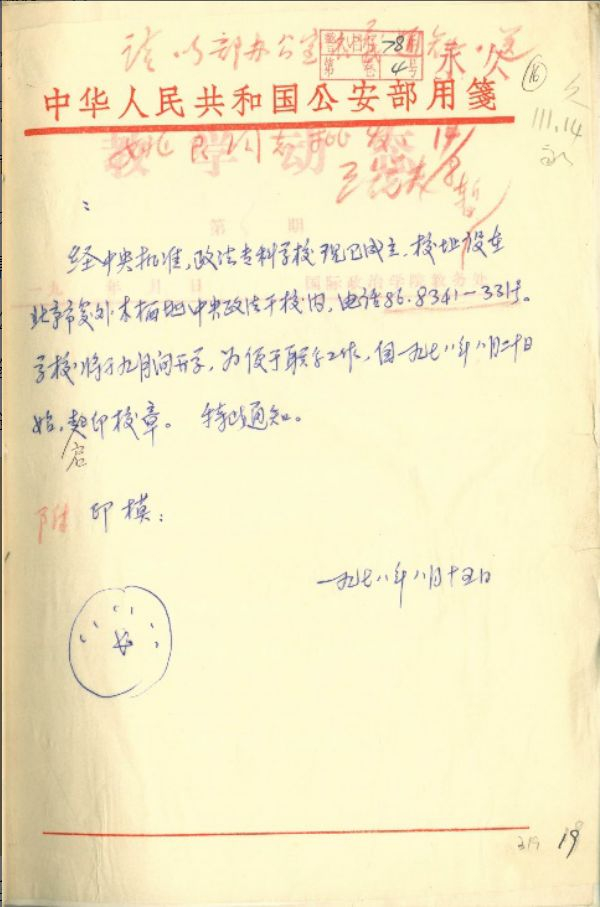 该以部办公室
78
第 卷 4 号
16
111.14
中华人民共和国公安部用笺
:
经中央批准，政法专科学校现已成立，校址设在
北京市复外木樨地中央政法干校内，电话86.8341—331号。
学校将于九月间开学，为便于联系工作，自一九七八年八月二十日
始，启印校章。 特此通知。
附 印模：
一九七八年八月十五日
319 19